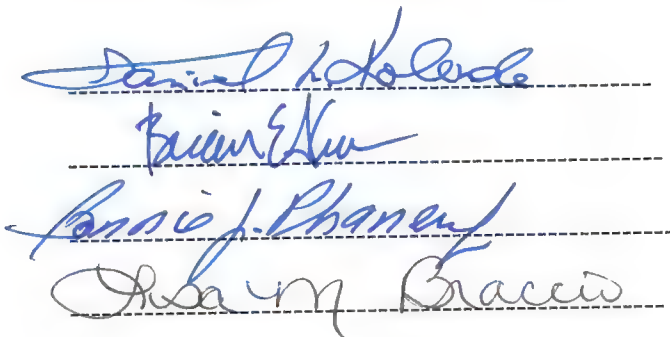 Daniel L. Kolenda
Brian E
J. Phaneuf
Lisa M Braccio